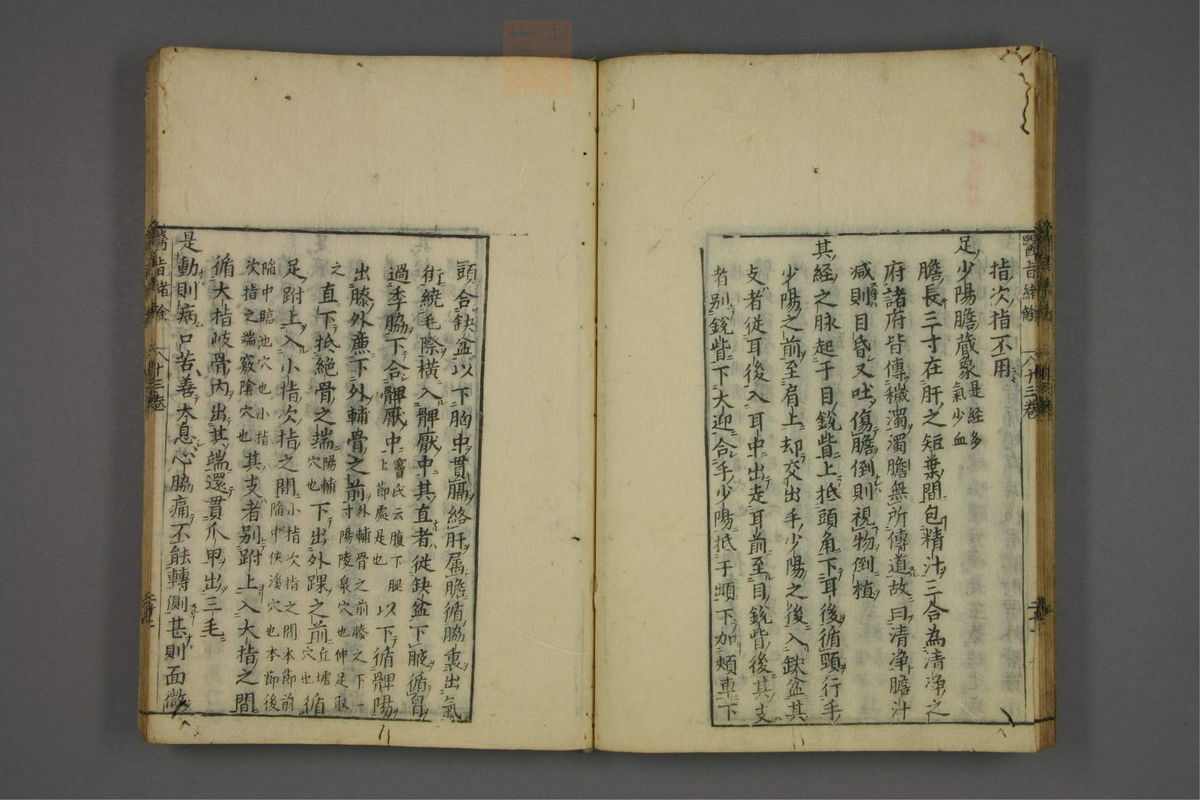 醫旨緒餘
八十三卷
指次指不用
足少陽膽藏象是経多
氣少血
膽長三寸在肝之短葉間包精汁三合為清浄之
府諸府皆傳穢濁濁膽無所傳道故曰清浄膽汁
減則目昏又吐傷膽倒則視物倒植
其経之脉起于目鋭眥上抵頭角下耳後循頸行手
少陽之前至肩上却交出手少陽之後入鈌盆其
支者從耳後入耳中出走耳前至目鋭眥後其支
者别鋭眥下大迎合手少陽抵于䪼下加頰車下
頸合鈌盆以下胸中貫膈絡肝属膽循脇裏出氣
街繞毛際横入髀厭中其直者從缺盆下腋循胷
過季脇下合髀厭中竇氏云腹下腿
上節處是也以下循髀陽
出膝外廉下外輔骨之前外輔骨之前膝之下一
寸陽陵泉穴也伸足取
之
直下抵絶骨之端陽輔
穴也下出外踝之前丘墟
穴也循
足跗上入小指次指之間小指次指之間本節前
陥中侠溪穴也本節後
陥中臨池穴也小指
次指之端竅陰穴也其支者别跗上入大指之間
循大指岐骨内出其端還貫爪甲出三毛
是動則病口苦善大息心脇痛不能轉側甚則面微
醫旨緒餘
八十三卷